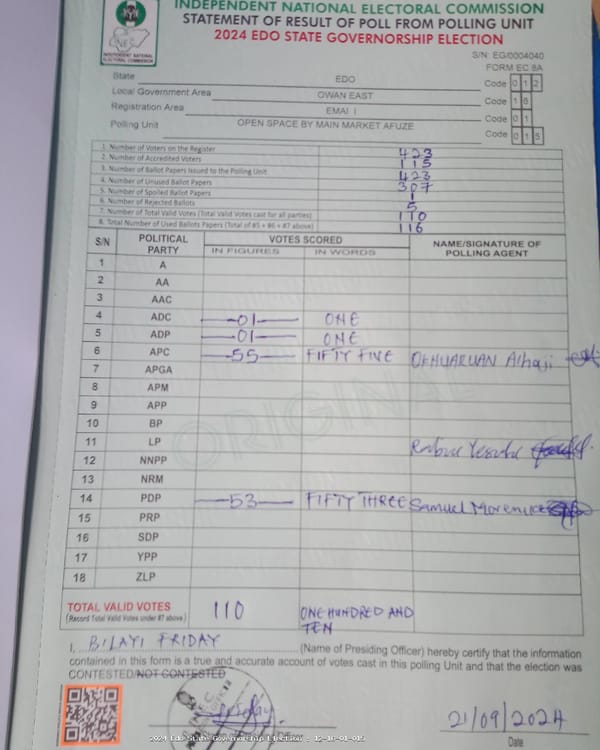 INDEPENDENT NATIONAL ELECTORAL COMMISSION
STATEMENT OF RESULT OF POLL FROM POLLING UNIT
2024 EDO STATE GOVERNORSHIP ELECTION
INEC
INDEPENDENT NATIONAL
ELECTORAL COMMISSION
S/N: EG/0004040
FORM EC 8A
State EDO Code 0 1 2
Local Government Area OWAN EAST Code 1 0
Registration Area EMAI I Code 0 1
Polling Unit OPEN SPACE BY MAIN MARKET AFUZE Code 0 1 5
1. Number of Voters on the Register 423
2. Number of Accredited Voters 115
3. Number of Ballot Papers Issued to the Polling Unit 423
4. Number of Unused Ballot Papers 307
5. Number of Spoiled Ballot Papers 1
6. Number of Rejected Ballots 5
7. Number of Total Valid Votes (Total Valid Votes cast for all parties) 110
8. Total Number of Used Ballots Papers (Total of #5 + #6 + #7 above) 116
S/N POLITICAL PARTY VOTES SCORED NAME/SIGNATURE OF POLLING AGENT
IN FIGURES IN WORDS
1 A
2 AA
3 AAC
4 ADC 01 ONE
5 ADP 01 ONE
6 APC 55 FIFTY FIVE Alhaji
7 APGA
8 APM
9 APP
10 BP
11 LP
12 NNPP
13 NRM
14 PDP 53 FIFTY THREE Samuel
15 PRP
16 SDP
17 YPP
18 ZLP
ORIGINAL
TOTAL VALID VOTES 110 ONE HUNDRED AND
(Record Total Valid Votes under #7 above) TEN
I, BILAYI FRIDAY (Name of Presiding Officer) hereby certify that the information
contained in this form is a true and accurate account of votes cast in this polling Unit and that the election was
CONTESTED/NOT CONTESTED
21/09/2024
Date
2024 Edo State Governorship Election : 12-10-01-015